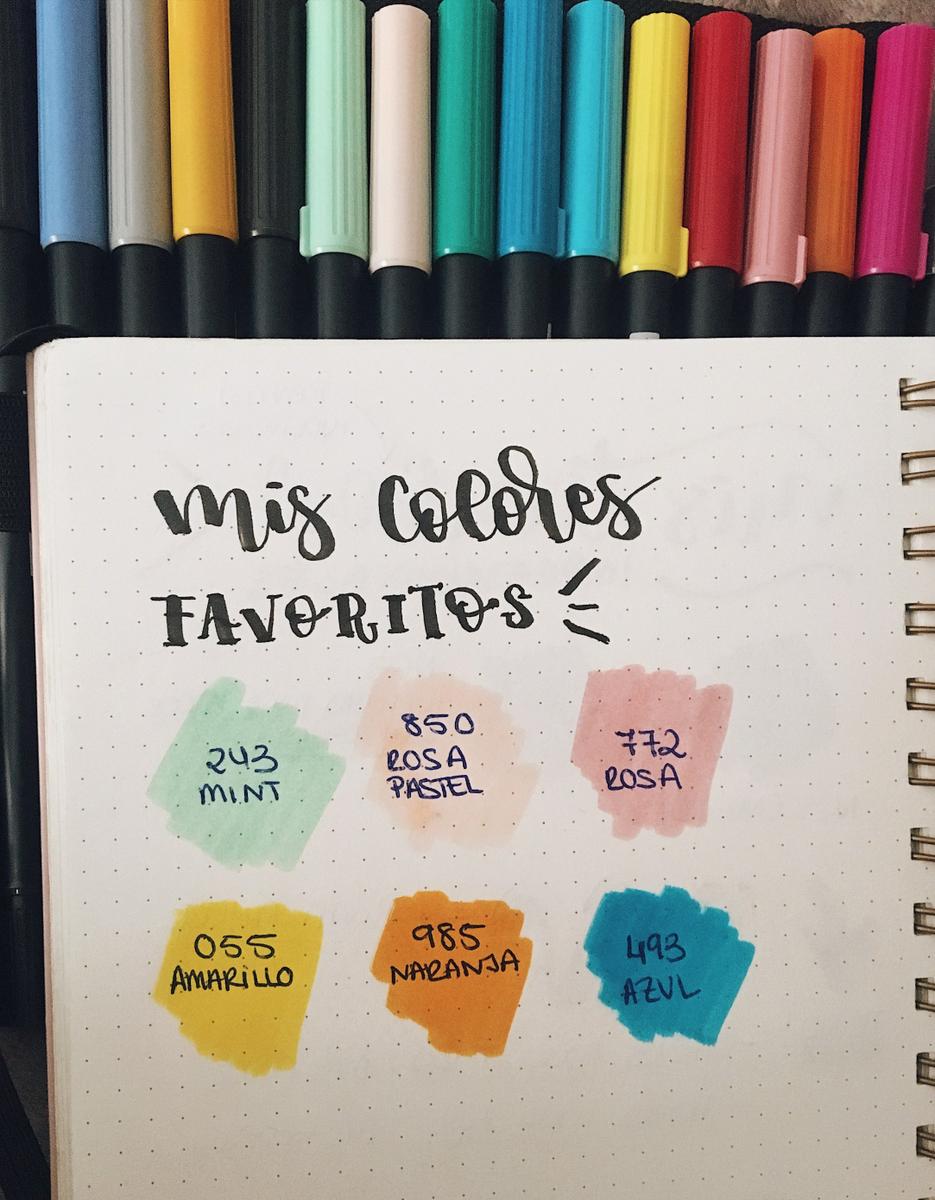 mis colores
FAVORITOS
243
MINT
850
ROSA
PASTEL
772
ROSA
055
AMARILLO
985
NARANJA
493
AZUL